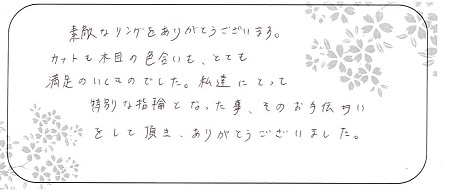 素敵なリングをありがとうございます。
カットも木目の色合いも、とても
満足のいくものでした。私達にとって
特別な指輪となった事、そのお手伝い
をして頂き、ありがとうございました。